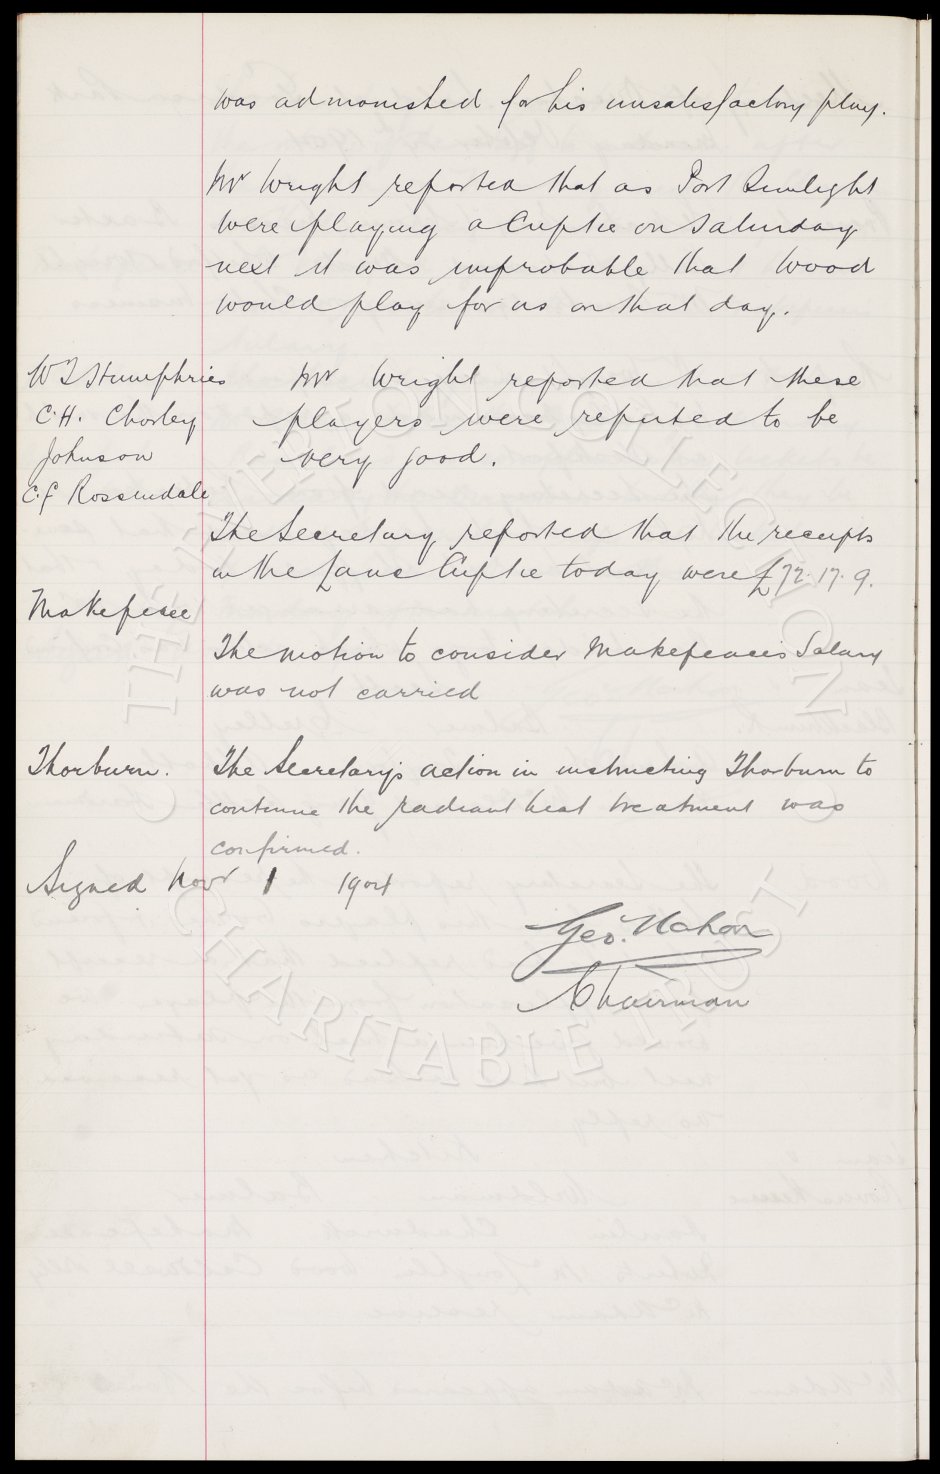 was admonished for his unsatisfactory play.
Mr Wright reported that as Port Sunlight
were playing a Cuptie on Saturday
next it was improbable that Wood
would play for us on that day.
W J Humphries
C.H. Chorley
Johnson
C.F Rossindale
Mr Wright reported that these
players were reputed to be
very good.
The Secretary reported that the receipts
in the Lancs Cuptie today were £72.17.9.
Makepeace
The motion to consider Makepeaces Salary
was not carried
Thorburn.
The Secretary's action in instructing Thorburn to
continue the radiant heat treatment was
confirmed.
Signed Novr 1 1904
Geo. Mahon
Chairman
THE EVERTON COLLECTION
CHARITABLE TRUST